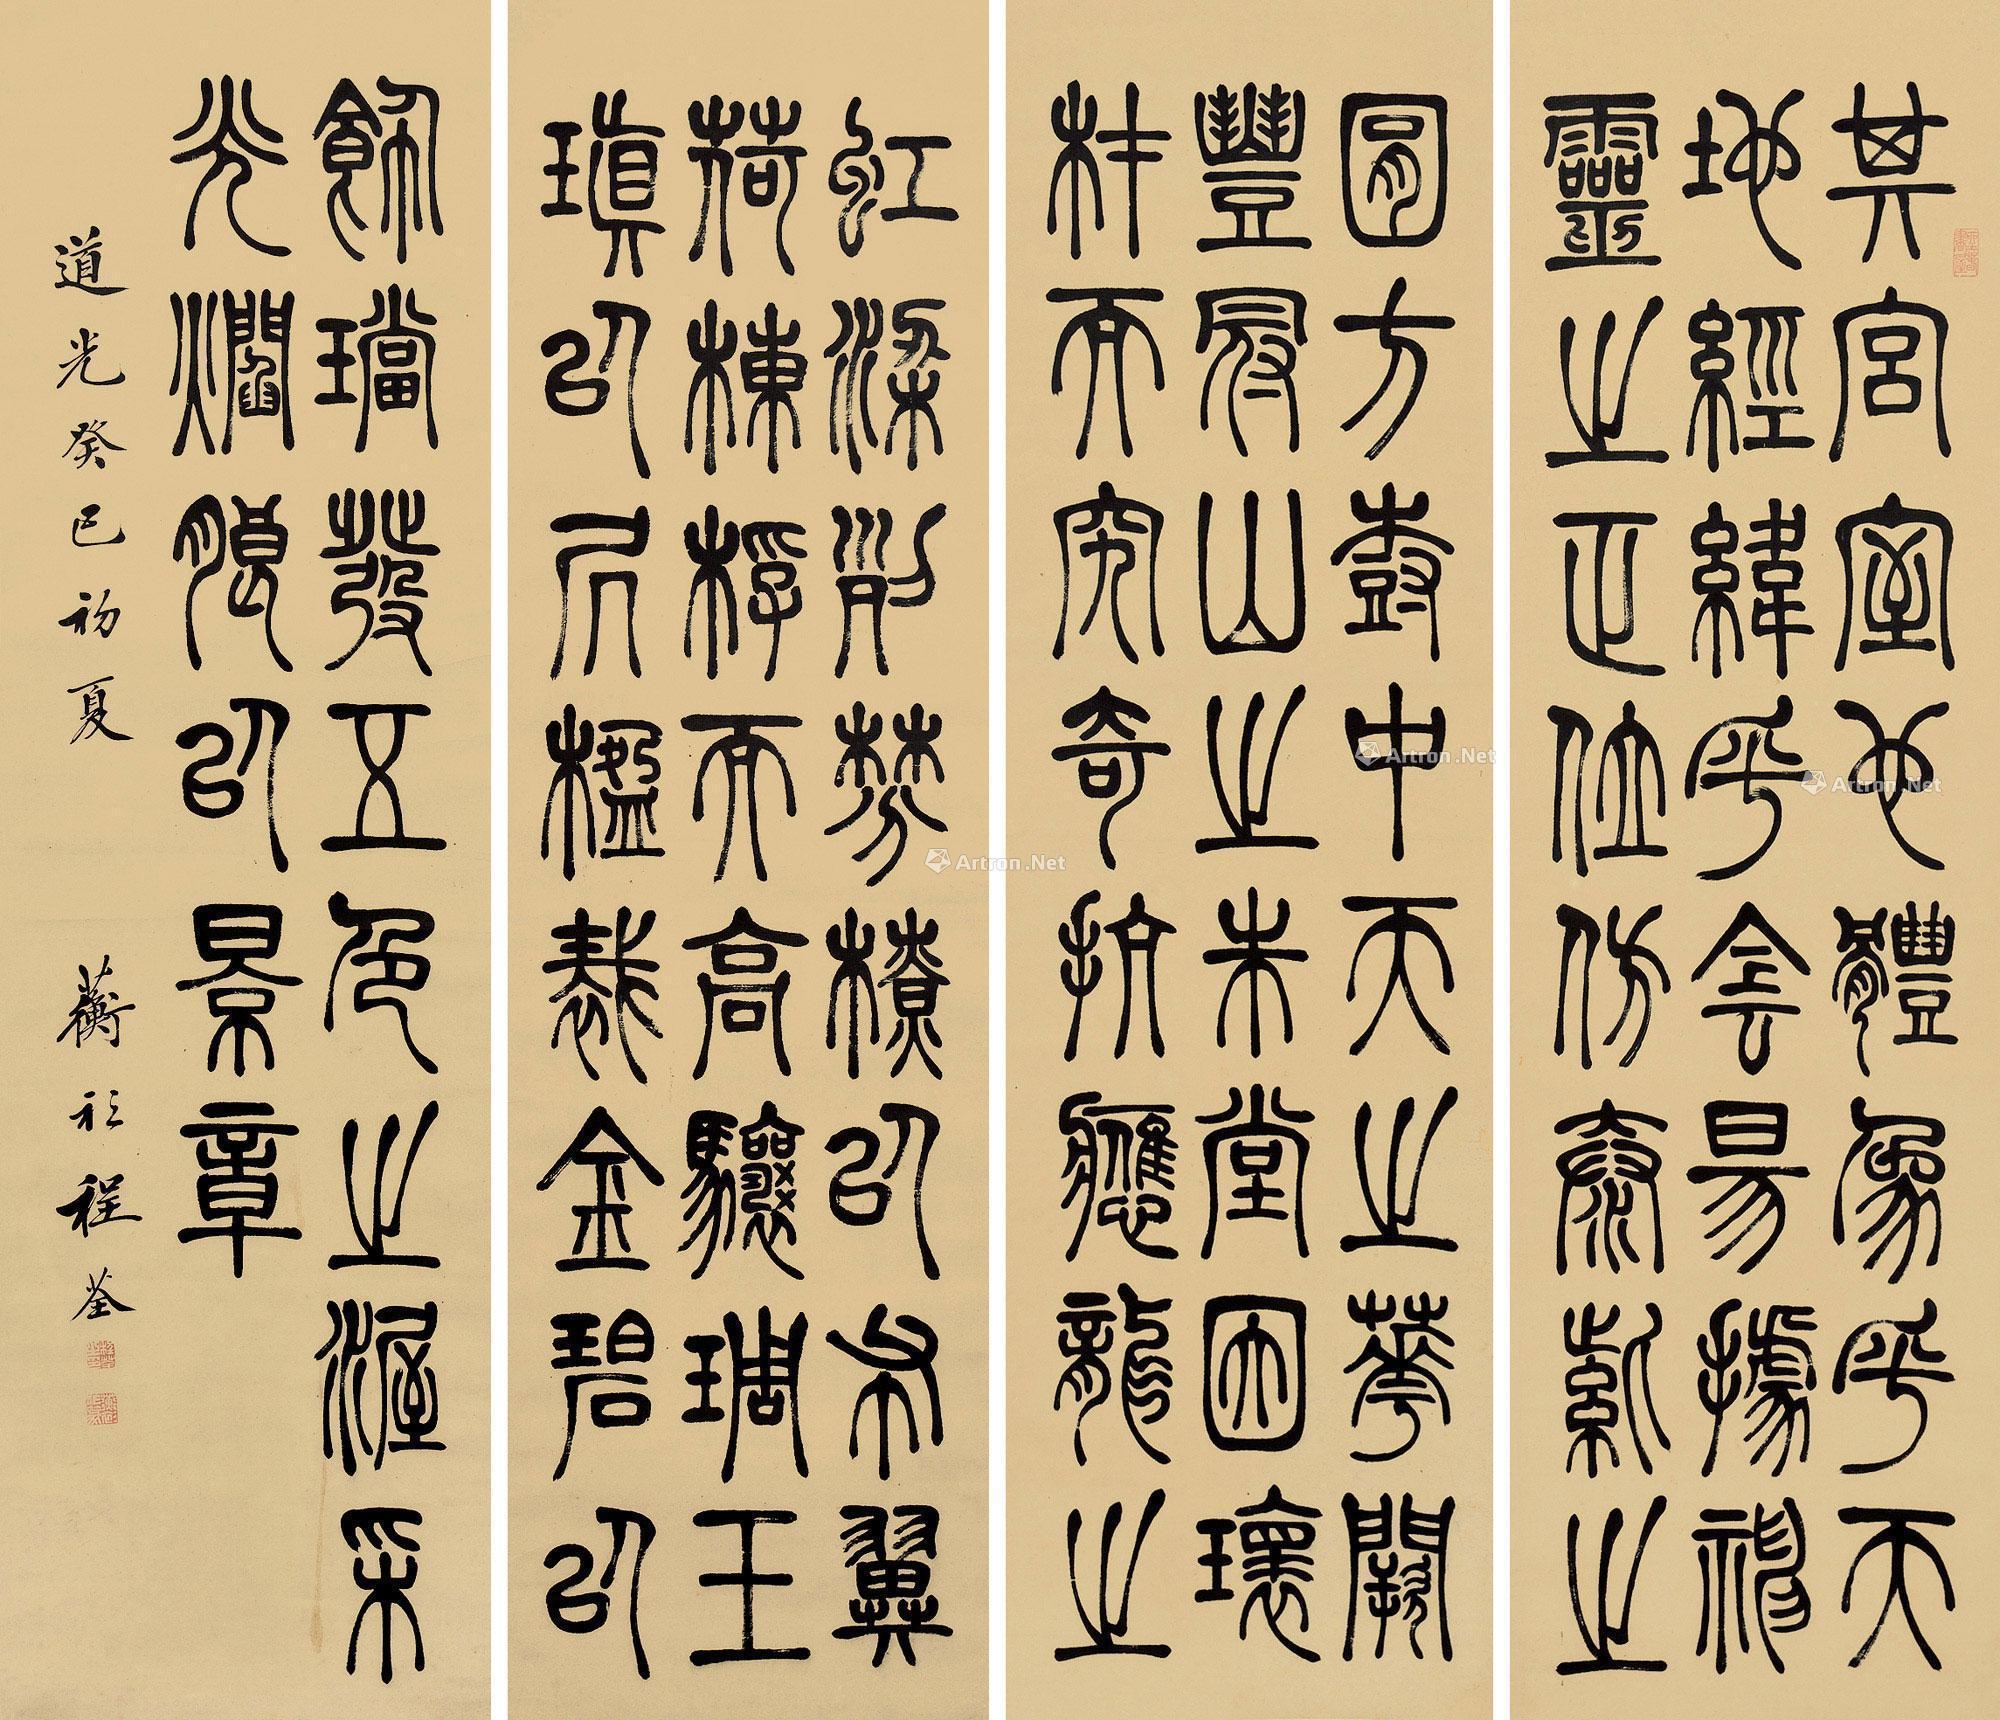 其宮室也體象乎天
地經緯乎侌昜據神
靈之正位仿泰紫之
圓方尌中天之華闕
豐冠山之朱堂因瓌
材而究奇抗應龍之
虹梁列棼橑以布翼
荷棟桴而高驤琱玉
瑱以凥楹裁金碧以
飾璫發五色之渥采
光爓朖以景章
道光癸巳初夏 蘅衫程荃
Artron.Net
Artron.Net
Artron.Net